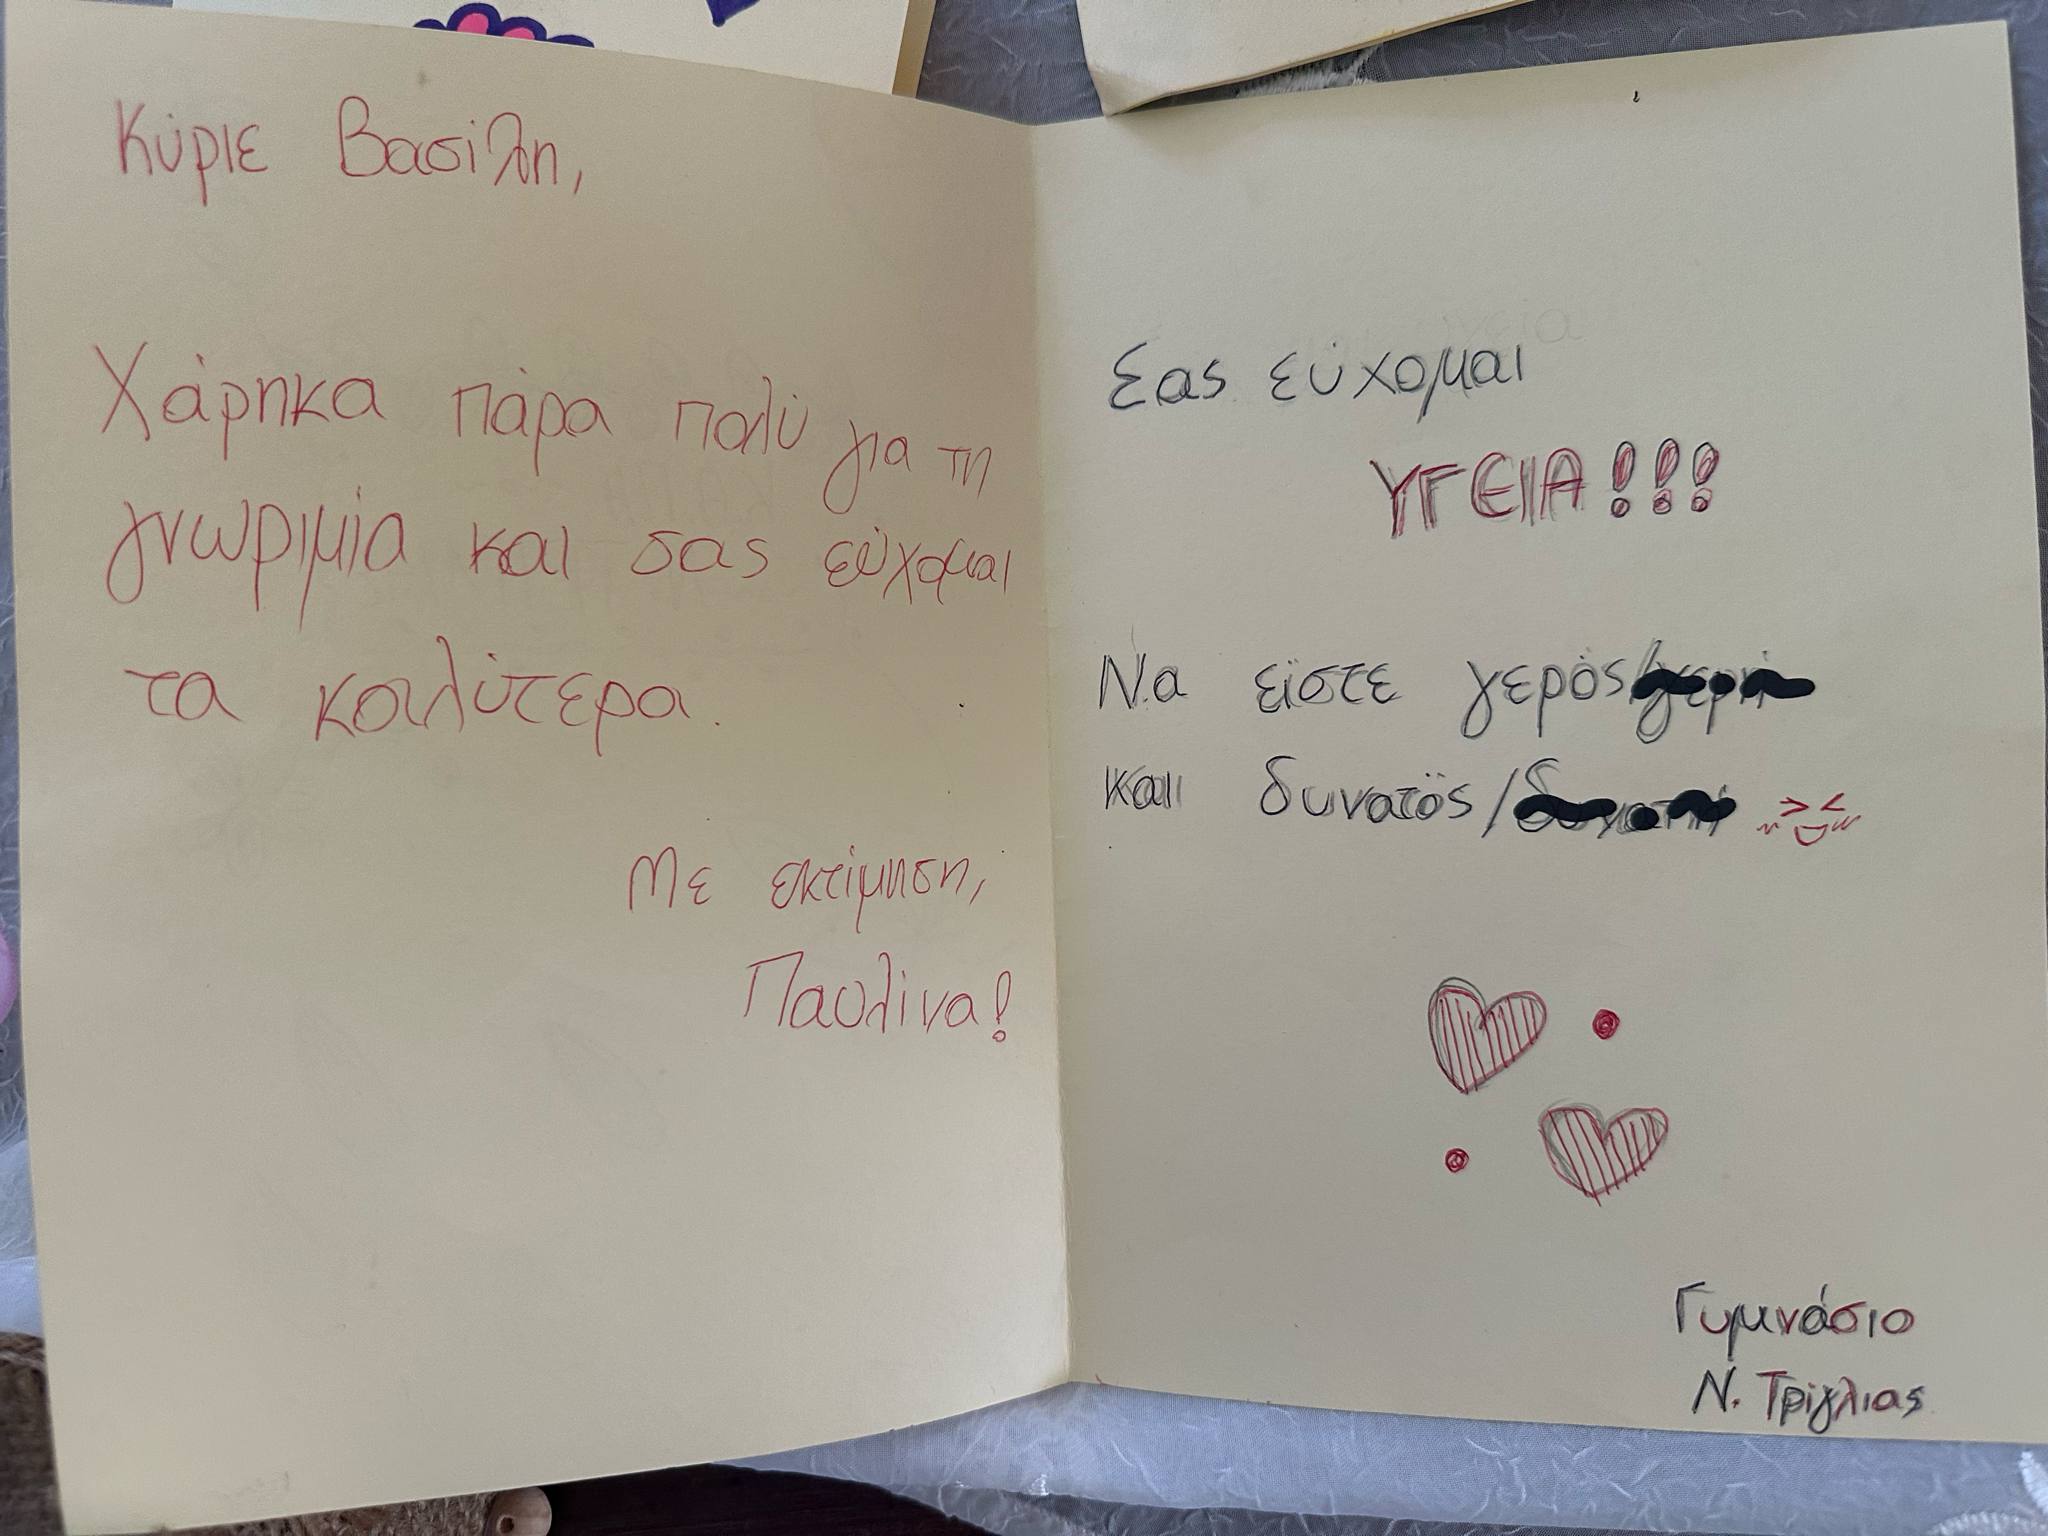 Κύριε Βασίλη,
Χάρηκα πάρα πολύ για τη
γνωριμία και σας εύχομαι
τα καλύτερα.
Με εκτίμηση,
Παυλίνα!
Σας εύχομαι
ΥΓΕΙΑ!!!
Να είστε γερός/γερή
και δυνατός/δυνατή
Γυμνάσιο
Ν. Τρίγλιας